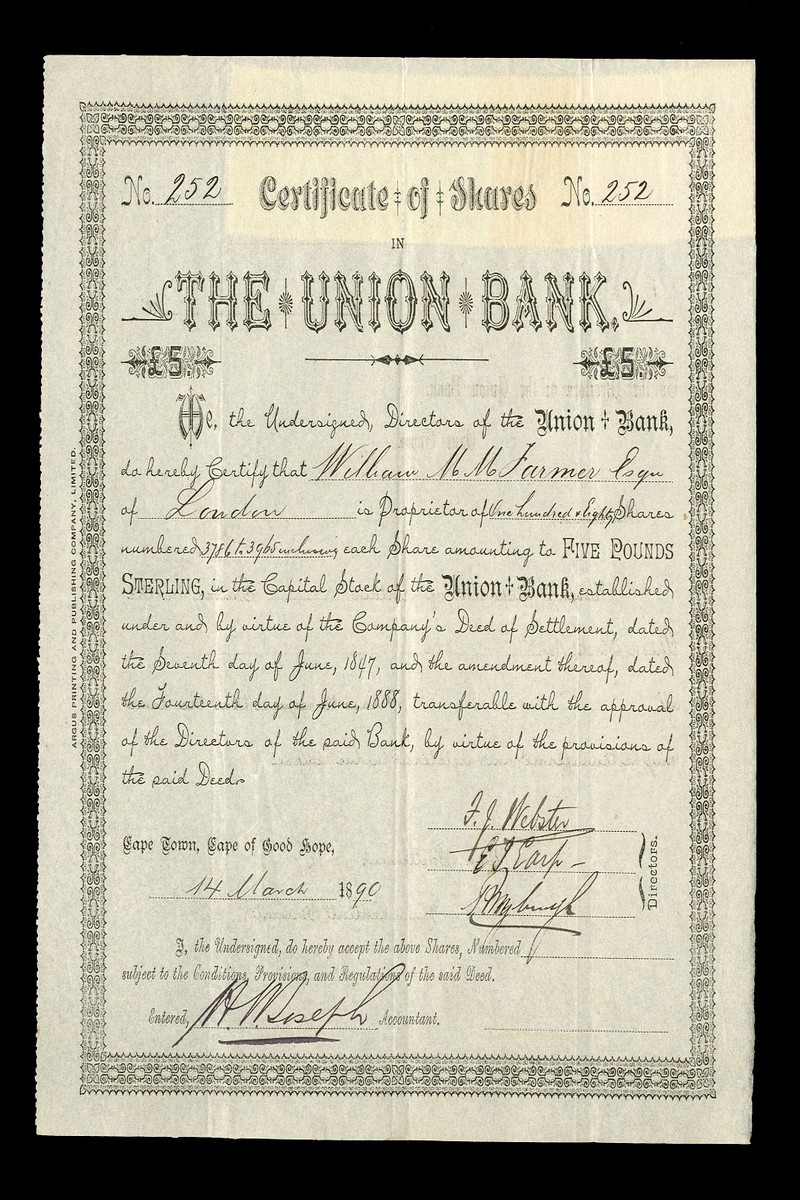 No. 252 Certificate of Shares No. 252
IN
THE UNION BANK.
£5. £5.
We, the Undersigned, Directors of the Union Bank,
do hereby Certify that William M M Farmer Esqu
of London is Proprietor of One hundred & Eighty Shares
numbered 3786 to 3965 inclusive, each Share amounting to FIVE POUNDS
STERLING, in the Capital Stock of the Union Bank, established
under and by virtue of the Company's Deed of Settlement, dated
the Seventh day of June, 1847, and the amendment thereof, dated
the Fourteenth day of June, 1888, transferable with the approval
of the Directors of the said Bank, by virtue of the provisions of
the said Deed.
F. J. Webster
Cape Town, Cape of Good Hope,
14 March 1890
Myburgh
Directors.
I, the Undersigned, do hereby accept the above Shares, Numbered
subject to the Conditions, Provisions, and Regulations of the said Deed.
Entered, Joseph Accountant.
ARGUS PRINTING AND PUBLISHING COMPANY, LIMITED.